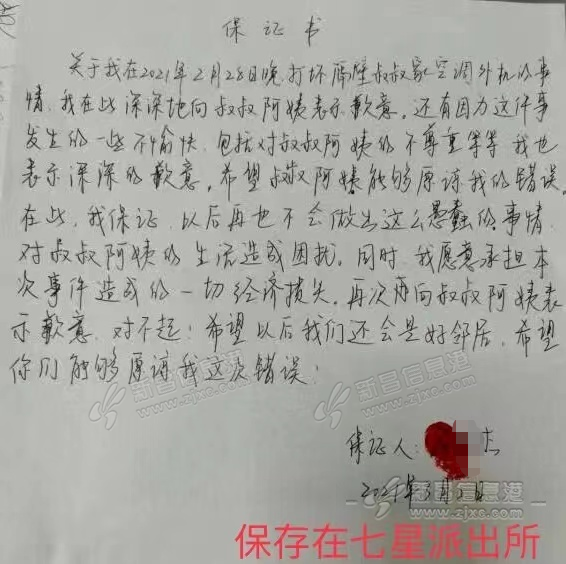 保证书
关于我在2021年2月28日晚打坏隔壁叔叔家空调外机的事
情,我在此深深地向叔叔阿姨表示歉意。还有因为这件事
发生的一些不愉快,包括对叔叔阿姨的不尊重等等我也
表示深深的歉意,希望叔叔阿姨能够原谅我的错误。
在此,我保证,以后再也不会做出这么愚蠢的事情,
对叔叔阿姨的生活造成困扰。同时,我愿意承担本
次事件造成的一切经济损失,再次再向叔叔阿姨表
示歉意,对不起!希望以后我们还会是好邻居,希望
你们能够原谅我这次错误!
新昌信息港
www.zjxc.com
新昌信息港
www.zjxc.com
保证人:
2021年3月 日
保存在七星派出所